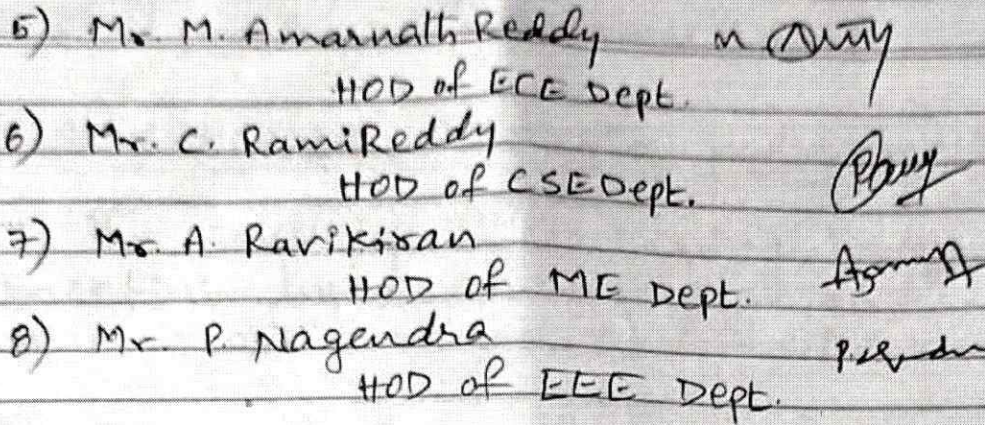 5) Mr. M. Amarnath Reddy
HOD of ECE Dept.
6) Mr. C. RamiReddy
HOD of CSE Dept.
7) Mr. A. Ravikiran
HOD of ME Dept.
8) Mr. P. Nagendra
HOD of EEE Dept.